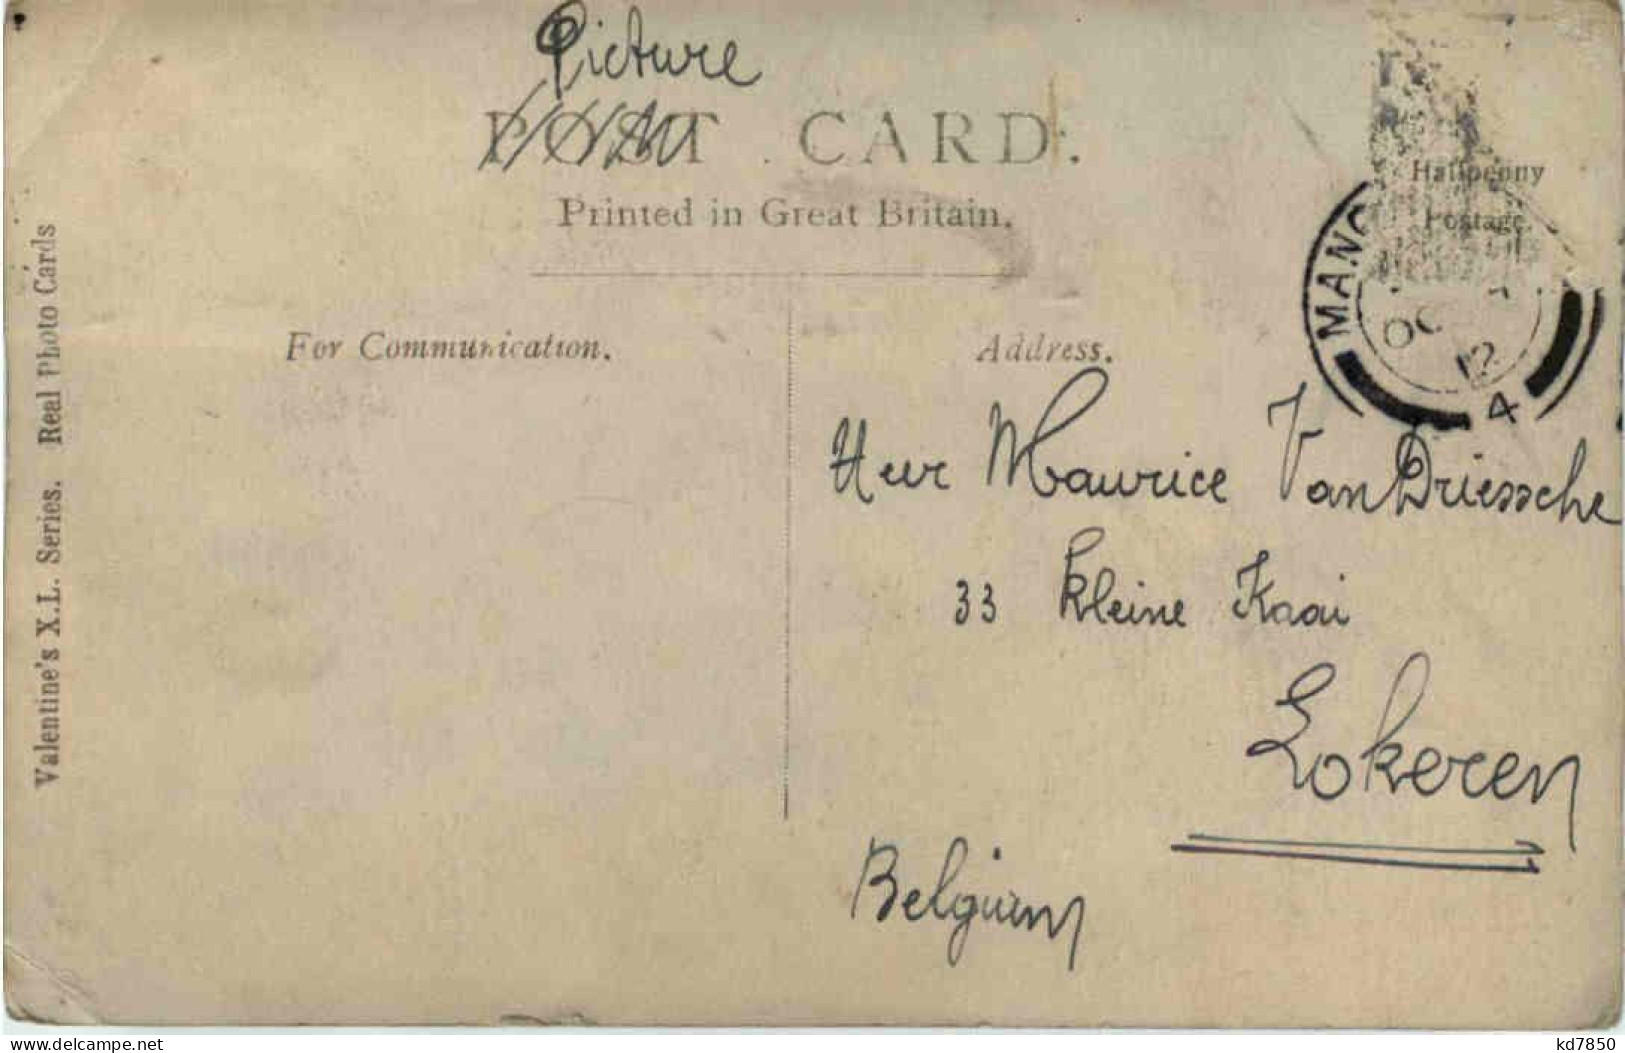 Picture
POST CARD.
Printed in Great Britain.
Halfpenny
Postage.
For Communication.
Address.
OC
12
4
Heer Maurice Van Driessche
33 Kleine Kaai
Lokeren
Belgium
Valentine's X.L. Series. Real Photo Cards
www.delcampe.net
kd7850